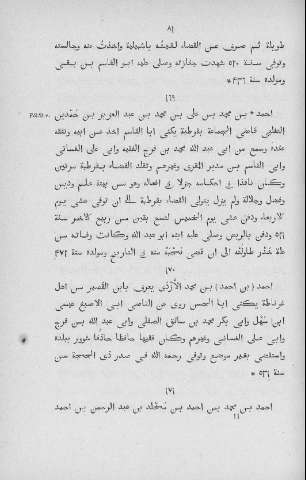 ٨١
طويلة ثم صرف عن القضاء لقيته باشبيلية واخذت عنه وجالسته
وتوفي سنة ٥٢٠ شهدت جنازته وصلى عليه ابو القاسم بن بقي
ومولده سنة ٤٣٦ *
١٦٩
احمد * بن محمد بن علي بن محمد بن عبد العزيز بن حمدين
التغلبي قاضي الجماعة بقرطبة يكنى ابا القاسم اخذ عن ابيه وتفقه
عنده وسمع من ابي عبد الله محمد بن فرج الفقيه وابي علي الغساني
وابي القاسم بن مدير المقرئ وغيرهم وتقلد القضاء بقرطبة مرتين
وكان نافذا في احكامه جزلا في افعاله وهو من بيته علم ودين
وفضل وجلالة ولم يزل يتولى القضاء بقرطبة الى ان توفي عشي يوم
الاربعاء ودفن عشي يوم الخميس لسبع بقين من ربيع الاخر سنة
٥٢١ ودفن بالربض وصلى عليه ابنه ابو عبد الله وكانت وفاته من
علة خدر طاولته الى ان قضى نحبه منه في التاريخ ومولده سنة ٤٧٢
١٧٠
احمد (بن احمد) بن محمد الأزدي يعرف بابن القصير من اهل
غرناطة يكنى ابا الحسن روى عن القاضي ابي الاصبغ عيسى
ابن سهل وابي بكر محمد بن سابق الصقلي وابي عبد الله بن فرج
وابي علي الغساني وغيرهم وكان فقيها حافظا حاذقا شوور ببلده
واستقضي بغير موضع وتوفي رحمه الله في صدر ذي الحجة من
سنة ٥٣١ *
١٧١
احمد بن محمد بن احمد بن مخلد بن عبد الرحمن بن احمد
11